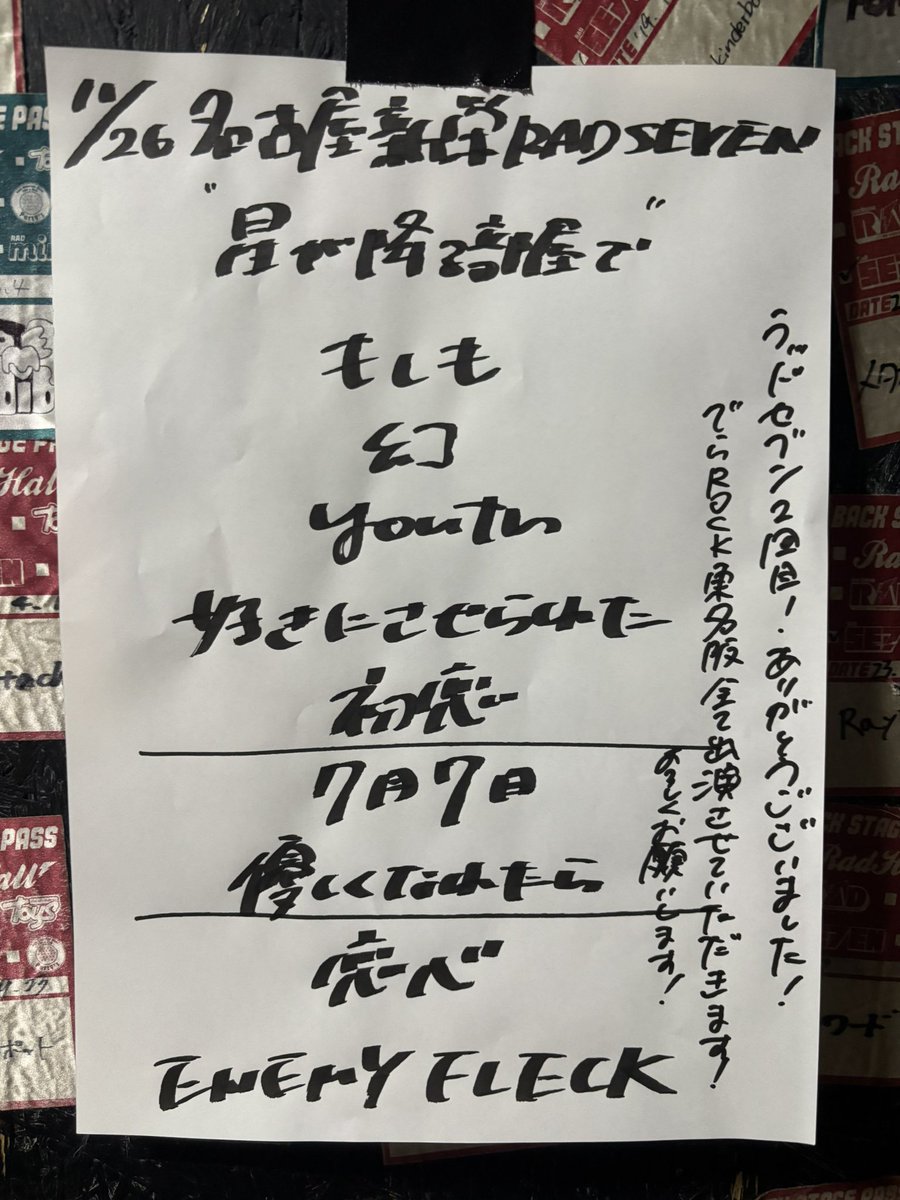 11/26 名古屋新栄RAD SEVEN
"星が降る部屋で"
もしも
幻
youth
好きにさせられた
初恋
7月7日
優しくなれたら
恋心
ENEMY FLECK
ラッドセブン2回目!ありがとうございました!
でらROCK東名阪全て出演させていただきます!
よろしくお願いします!
BACK STAGE PASS
Hall
Toys
RAD
mini
DATE
SEVEN
kinderbo
Ray
ワード
ボット